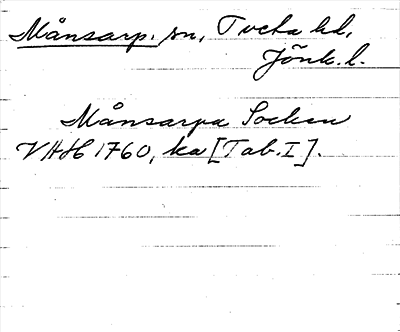 Månsarp. sn, Tveta hd,
Jönk. l.
Månsarpa Socken
VHH 1760, ka [Tab. I].